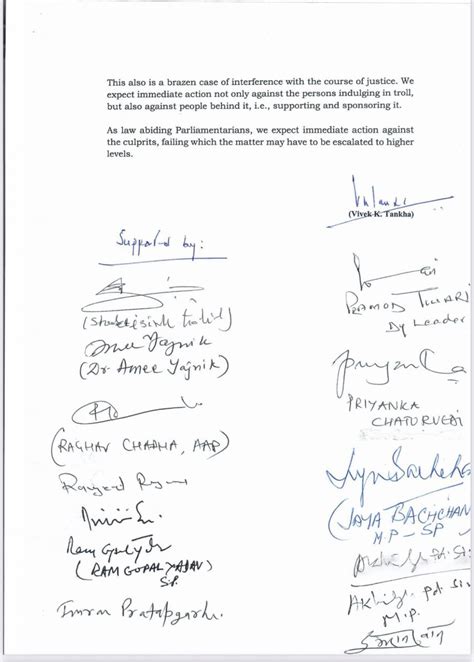 This also is a brazen case of interference with the course of justice. We
expect immediate action not only against the persons indulging in troll,
but also against people behind it, i.e., supporting and sponsoring it.
As law abiding Parliamentarians, we expect immediate action against
the culprits, failing which the matter may have to be escalated to higher
levels.
(Vivek K. Tankha)
Supported by:
PRAMOD TIWARI
Dy Leader
Amee Yajnik
(Dr. Amee Yajnik)
Priyanka
PRIYANKA
CHATURVEDI
(RAGHAV CHADHA, AAP)
Ranjeet Ranjan
(JAYA BACHCHAN
M.P - SP
Ram Gopal Yadav
(RAM GOPAL YADAV)
S.P.
M.P.
Imran Pratapgarhi